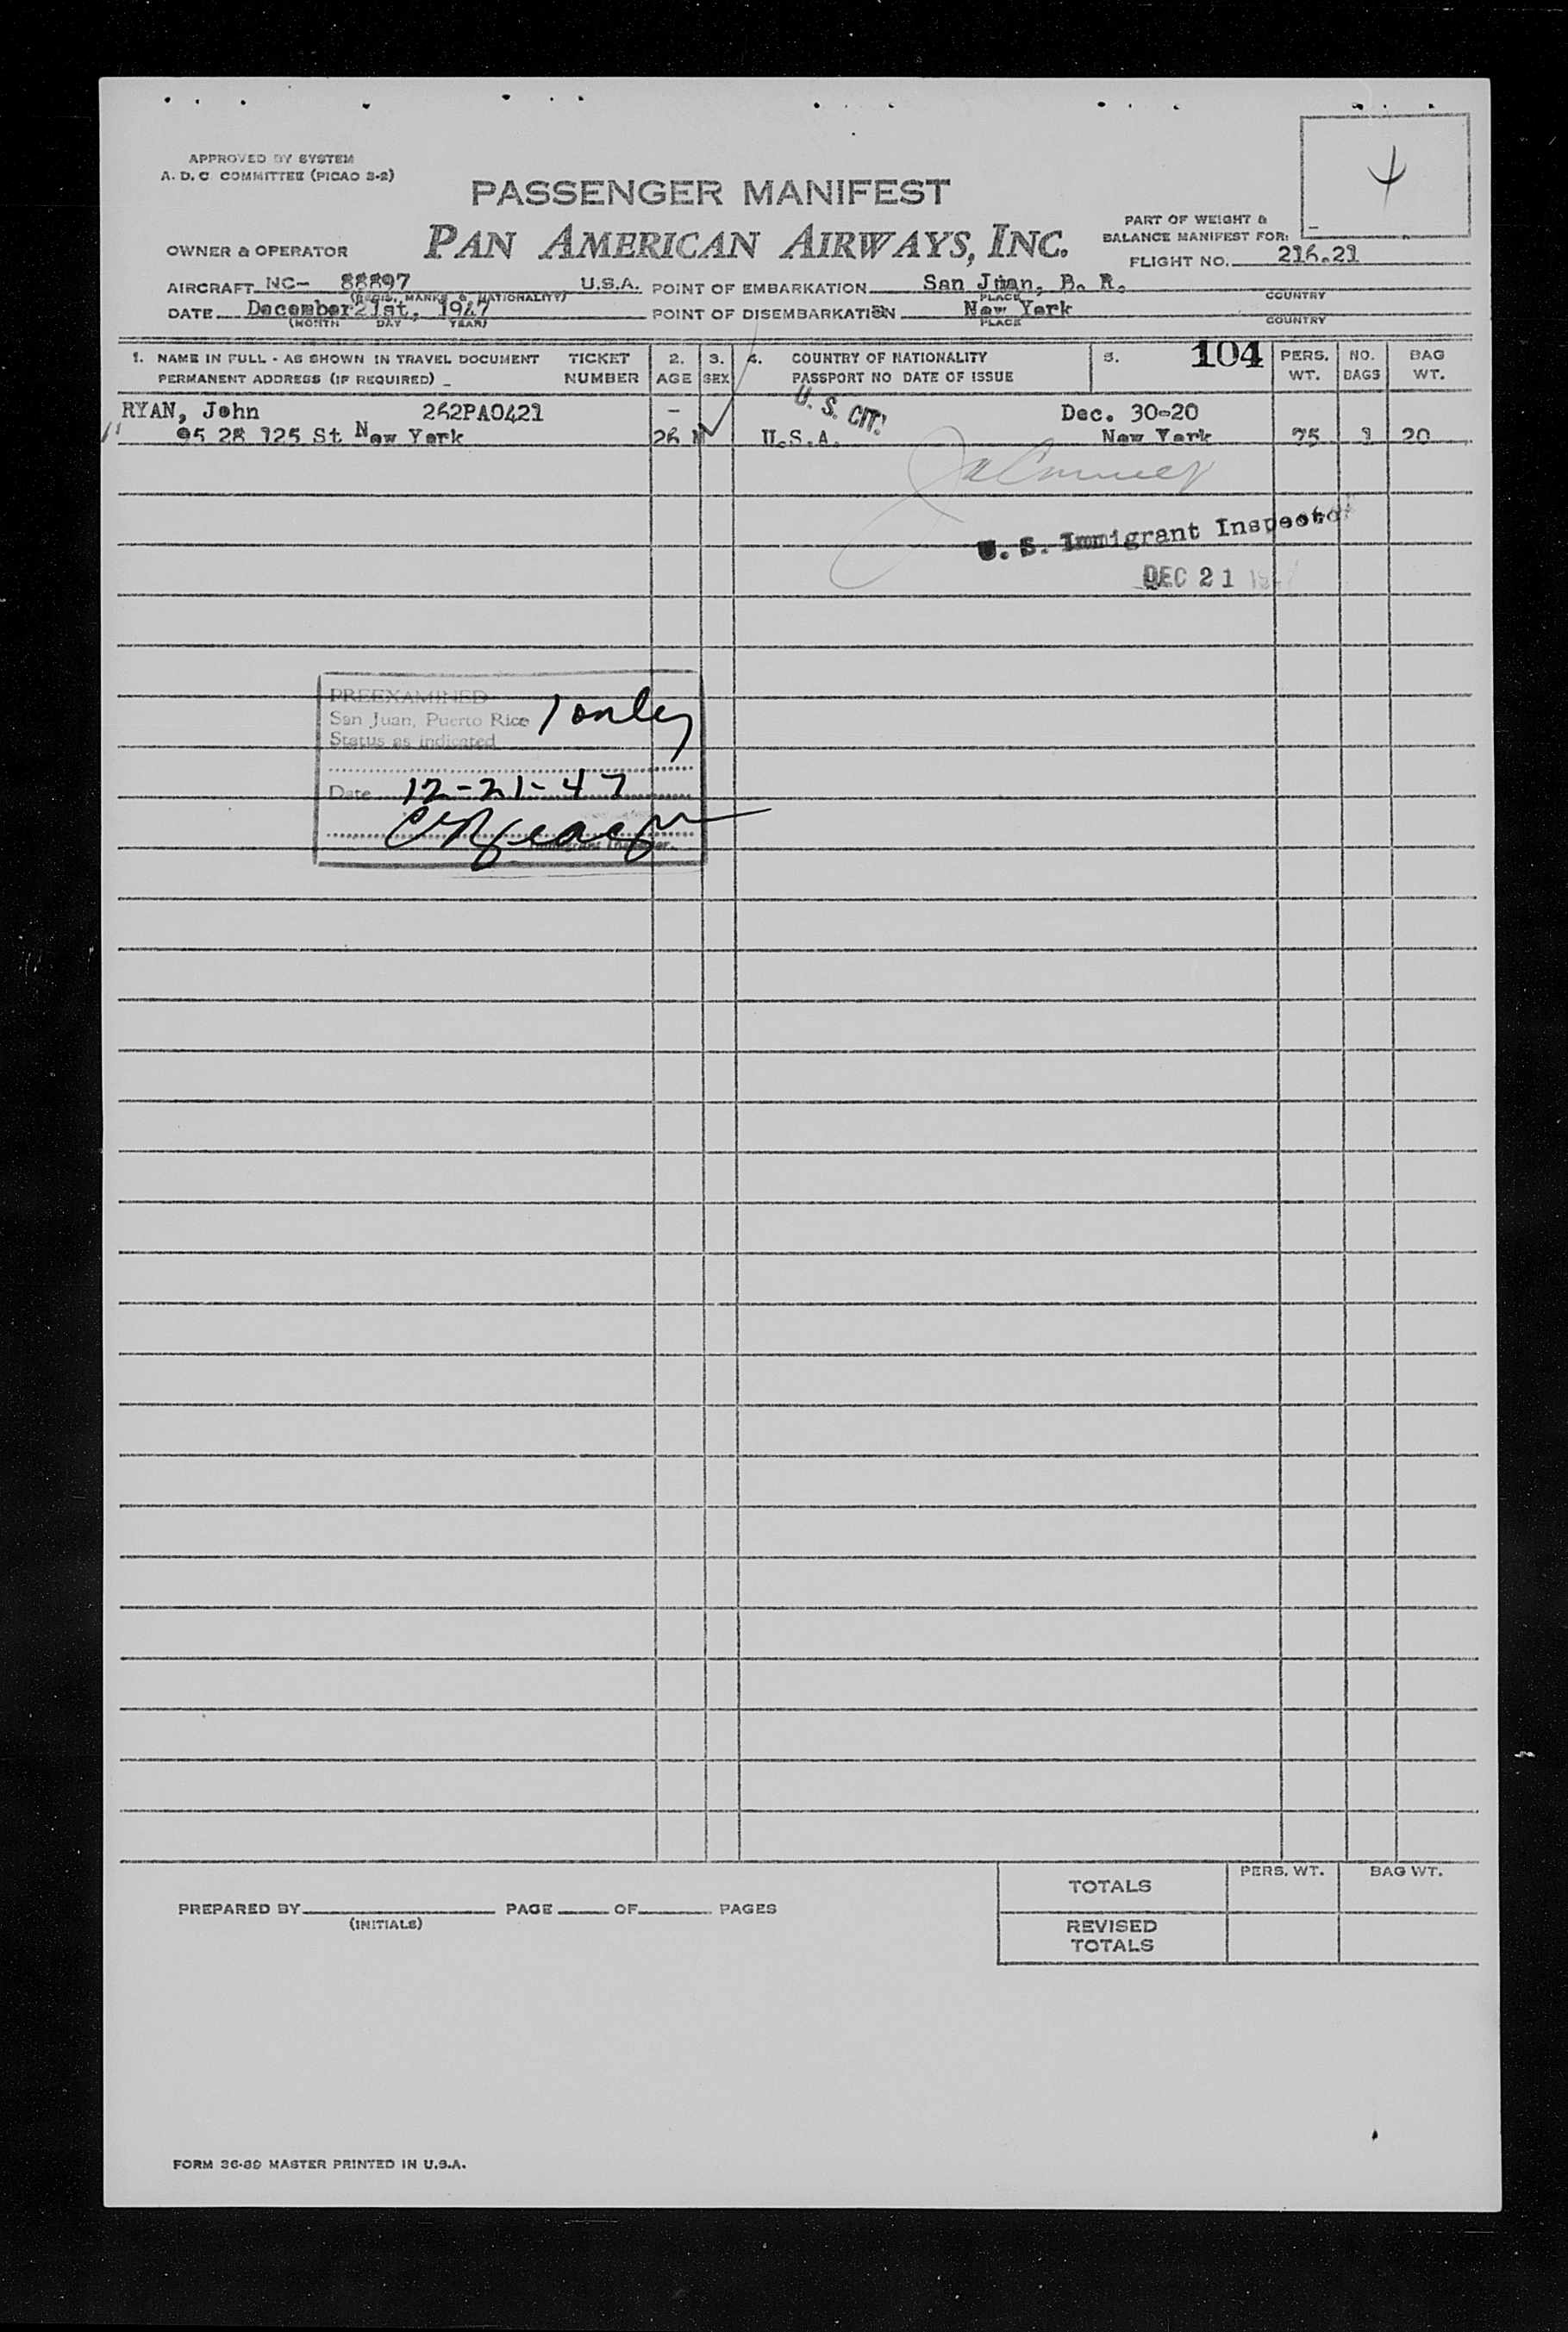 APPROVED BY SYSTEM
A. D. C. COMMITTEE (PICAO 3-2)
PASSENGER MANIFEST
PAN AMERICAN AIRWAYS, INC.
OWNER & OPERATOR
PART OF WEIGHT &
BALANCE MANIFEST FOR:
FLIGHT NO. 216.21
AIRCRAFT NC- 88897 U.S.A. POINT OF EMBARKATION San Juan, P. R.
(REGIS. MARKS & NATIONALITY) PLACE COUNTRY
DATE December 21st, 1947 POINT OF DISEMBARKATION New York
(MONTH DAY YEAR) PLACE COUNTRY
1. NAME IN FULL - AS SHOWN IN TRAVEL DOCUMENT TICKET 2. 3. 4. COUNTRY OF NATIONALITY 5. 104 PERS. NO. BAG
PERMANENT ADDRESS (IF REQUIRED) NUMBER AGE SEX PASSPORT NO DATE OF ISSUE WT. BAGS WT.
RYAN, John 262PA0421 - U. S. CIT. Dec. 30-20
95 28 125 St New York 26 M U.S.A. New York 75 1 20
U. S. Immigrant Inspector
DEC 21 1947
PREEXAMINED
San Juan, Puerto Rico 1 only
Status as indicated
Date 12-21-47
Immigrant Inspector.
TOTALS PERS. WT. BAG WT.
PREPARED BY PAGE OF PAGES
(INITIALS)
REVISED
TOTALS
FORM 36-89 MASTER PRINTED IN U.S.A.